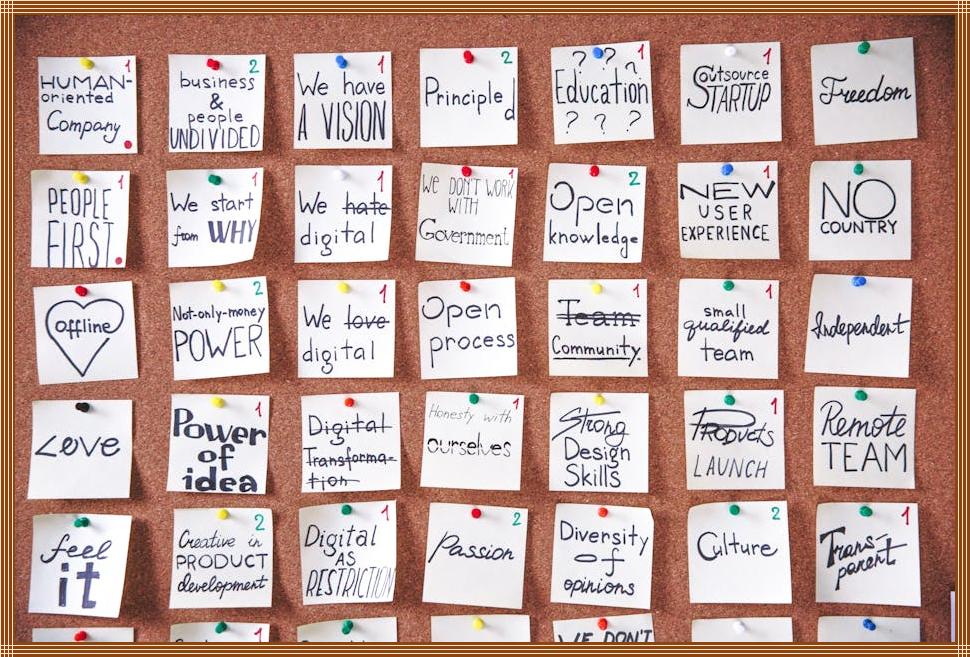 HUMAN- 1
oriented
Company
business 2
&
people
UNDIVIDED
We have 1
A VISION
Principled 2
? ? ? 1
Education
? ? ?
Outsource 1
STARTUP
Freedom
PEOPLE 1
FIRST.
We start 1
from WHY
We hate 1
digital
WE DON'T WORK 1
WITH
Government
Open 2
knowledge
NEW 1
USER
EXPERIENCE
NO
COUNTRY
offline
Not-only-money 2
POWER
We love 1
digital
Open
process
Team 1
Community.
small 1
qualified
team
Independent
Love
Power 1
of
idea
Digital
Transforma-
tion
Honesty with 1
ourselves
Strong
Design
Skills
Products 1
LAUNCH
Remote
TEAM
feel
it
Creative in 2
PRODUCT
development
Digital 1
AS
RESTRICTION
Passion 2
Diversity
of
opinions
Culture 2
Trans- 1
parent
1
WE DON'T